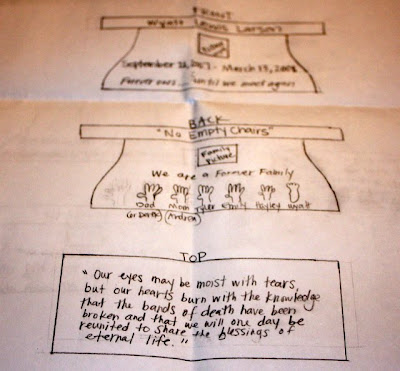 FRONT
Wyatt Lewis Larson
September 2007 - March 13, 2008
Forever ours... until we meet again
BACK
"No Empty Chairs"
Family
Picture
We are a Forever Family
Dad Mom Tyler Emily Hayley Wyatt
(Andrea)
TOP
"Our eyes may be moist with tears,
but our hearts burn with the knowledge
that the bands of death have been
broken and that we will one day be
reunited to share the blessings of
eternal life."